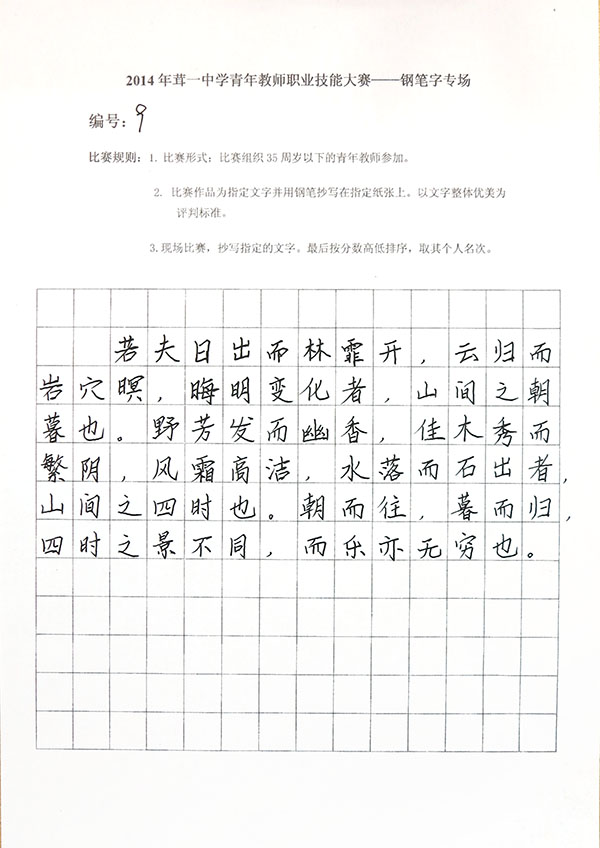 2014 年茸一中学青年教师职业技能大赛——钢笔字专场
编号：9
比赛规则：1. 比赛形式：比赛组织 35 周岁以下的青年教师参加。
2. 比赛作品为指定文字并用钢笔抄写在指定纸张上。以文字整体优美为
评判标准。
3.现场比赛，抄写指定的文字。最后按分数高低排序，取其个人名次。
若夫日出而林霏开，云归而
岩穴暝，晦明变化者，山间之朝
暮也。野芳发而幽香，佳木秀而
繁阴，风霜高洁，水落而石出者，
山间之四时也。朝而往，暮而归，
四时之景不同，而乐亦无穷也。